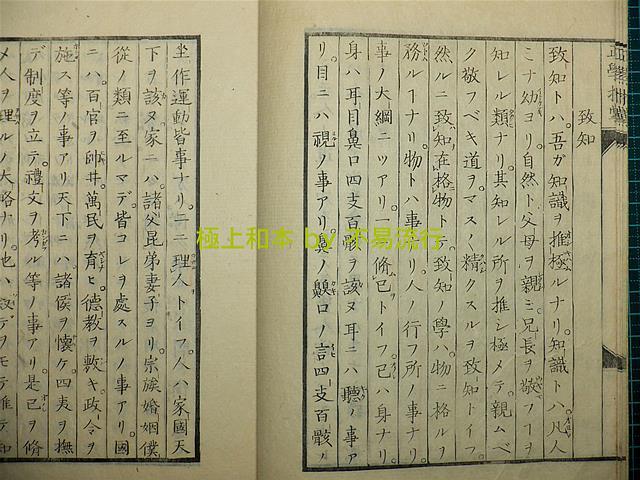 致知
致知トハ。吾ガ知識ヲ推極ルナリ。知識トハ。凡人
ニナ幼ヨリ。自然ト父母ヲ親ミ。兄長ヲ敬フヿヲ
知レル類ナリ。其知レル所ヲ推シ極メテ。親ムベ
ク敬フベキ道ヲ。マスく精クスルヲ致知トイフ。
然ルニ致知在格物トテ。致知ノ學ハ。物ニ格ルヲ
務ルヿナリ。物トハ事ナリ。人ノ行フ所ノ事ナリ。
事ノ大綱ニツアリ。一ニ脩已トイフ。已ハ身ナリ。
身ハ耳目鼻口四支百骸ヲ該ヌ。耳ニハ聽ノ事ア
リ。目ニハ視ノ事アリ。鼻ノ齅。口ノ言。四支百骸ノ
坐作運動皆事ナリ。二ニ理人トイフ。人ハ家國天
下ヲ該ヌ。家ニハ。諸父昆弟妻子ヨリ。宗族婚姻僕
從ノ類ニ至ルマデ。皆コレヲ處スルノ事アリ。國
ニハ。百官ヲ帥井。萬民ヲ育ヒ。德教ヲ敷キ。政令ヲ
施ス等ノ事アリ。天下ニハ。諸侯ヲ懷ケ。四夷ヲ撫
デ。制度ヲ立テ。禮文ヲ考ル等ノ事アリ。是已ヲ脩
メ人ヲ理ルノ大略ナリ。
極上和本 by 不易流行